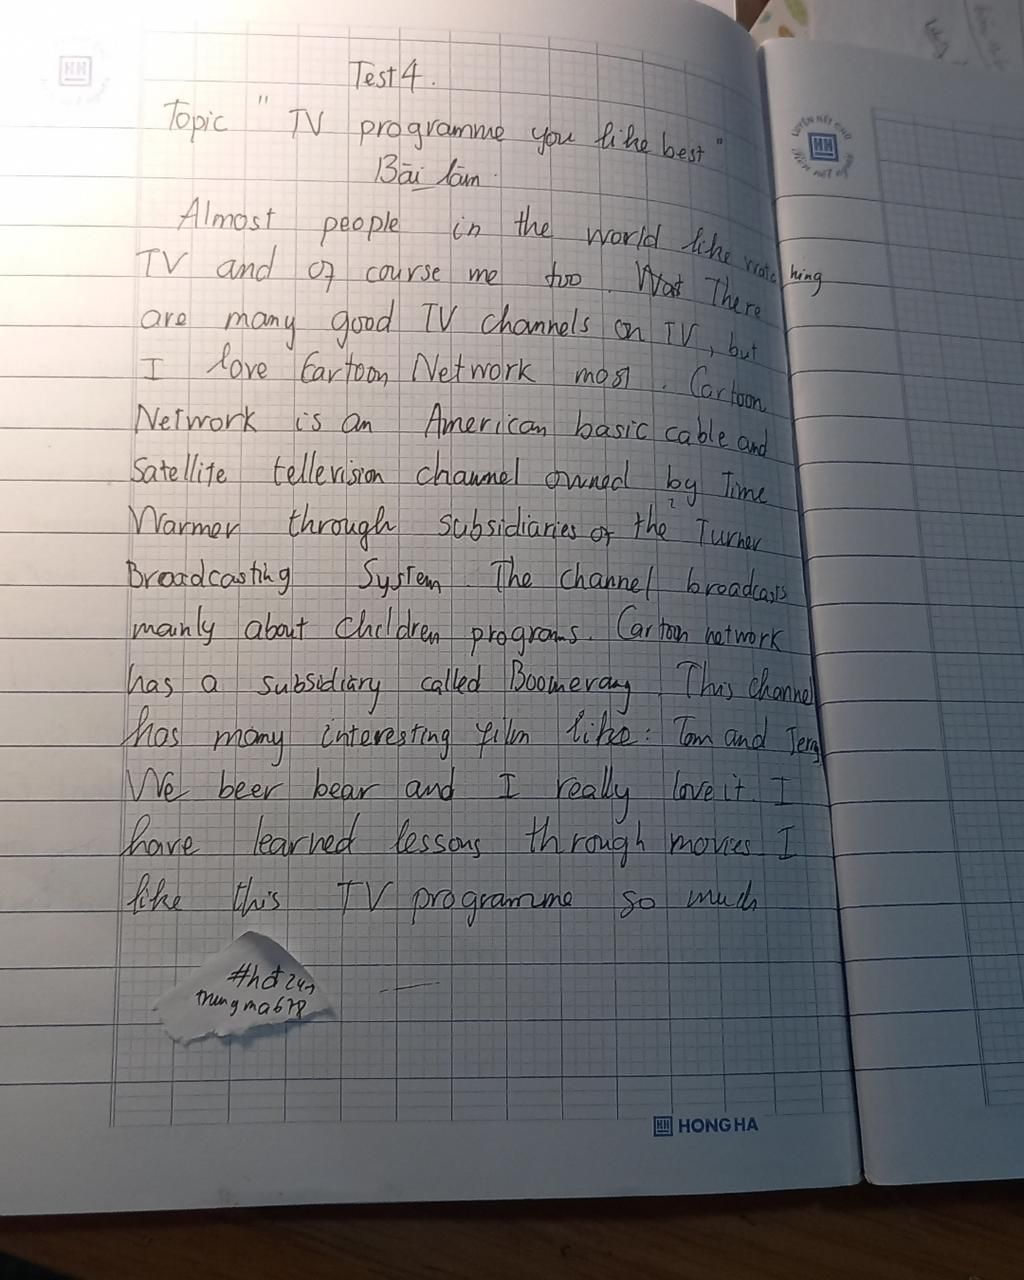 Test 4.
Topic " TV programme you like best "
Bài làm
Almost people in the world like watching
TV and of course me too. Wat There
are many good TV channels on TV, but
I love Cartoon Network most. Cartoon
Network is an American basic cable and
Satellite tellevision channel owned by Time
Warmer through subsidiaries of the Turner
Broadcasting System. The channel broadcasts
mainly about children programs. Cartoon network
has a subsidiary called Boomerang. This channel
has many interesting film like: Tom and Jerry
We beer bear and I really love it. I
have learned lessons through movies I
like this TV programme so much
#hđ247
trungma678
HH HONG HA
LUYỆN NÉT CHỮ
HH
Rèn nết người